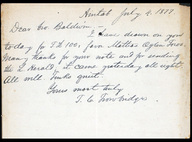 Aintab July 4. 1888.
Dear Mr. Baldwin:—
I have drawn on you
today for T£ 100, favor Mattias Agha
Many thanks for your note and for sending
the Z. Herald. It came yesterday all right.
All well. Town quiet.
Yours most truly
T. C. Trowbridge.